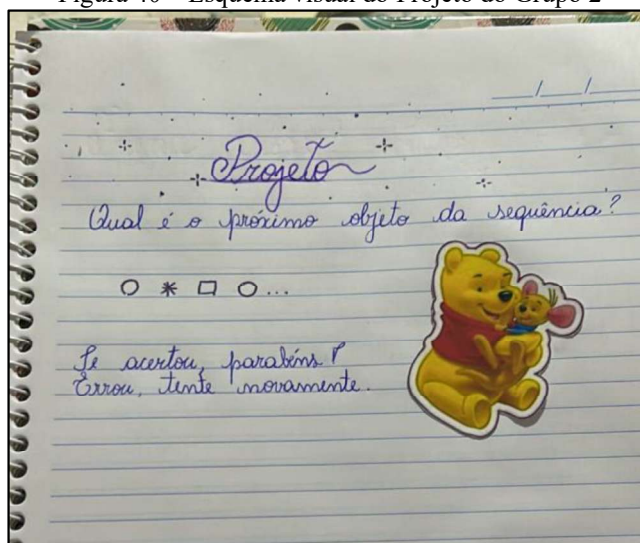 Figura 40 – Esquema visual do Projeto do Grupo 2
Projeto
Qual é o próximo objeto da sequência?
Se acertou, parabéns!
Errou, tente novamente.